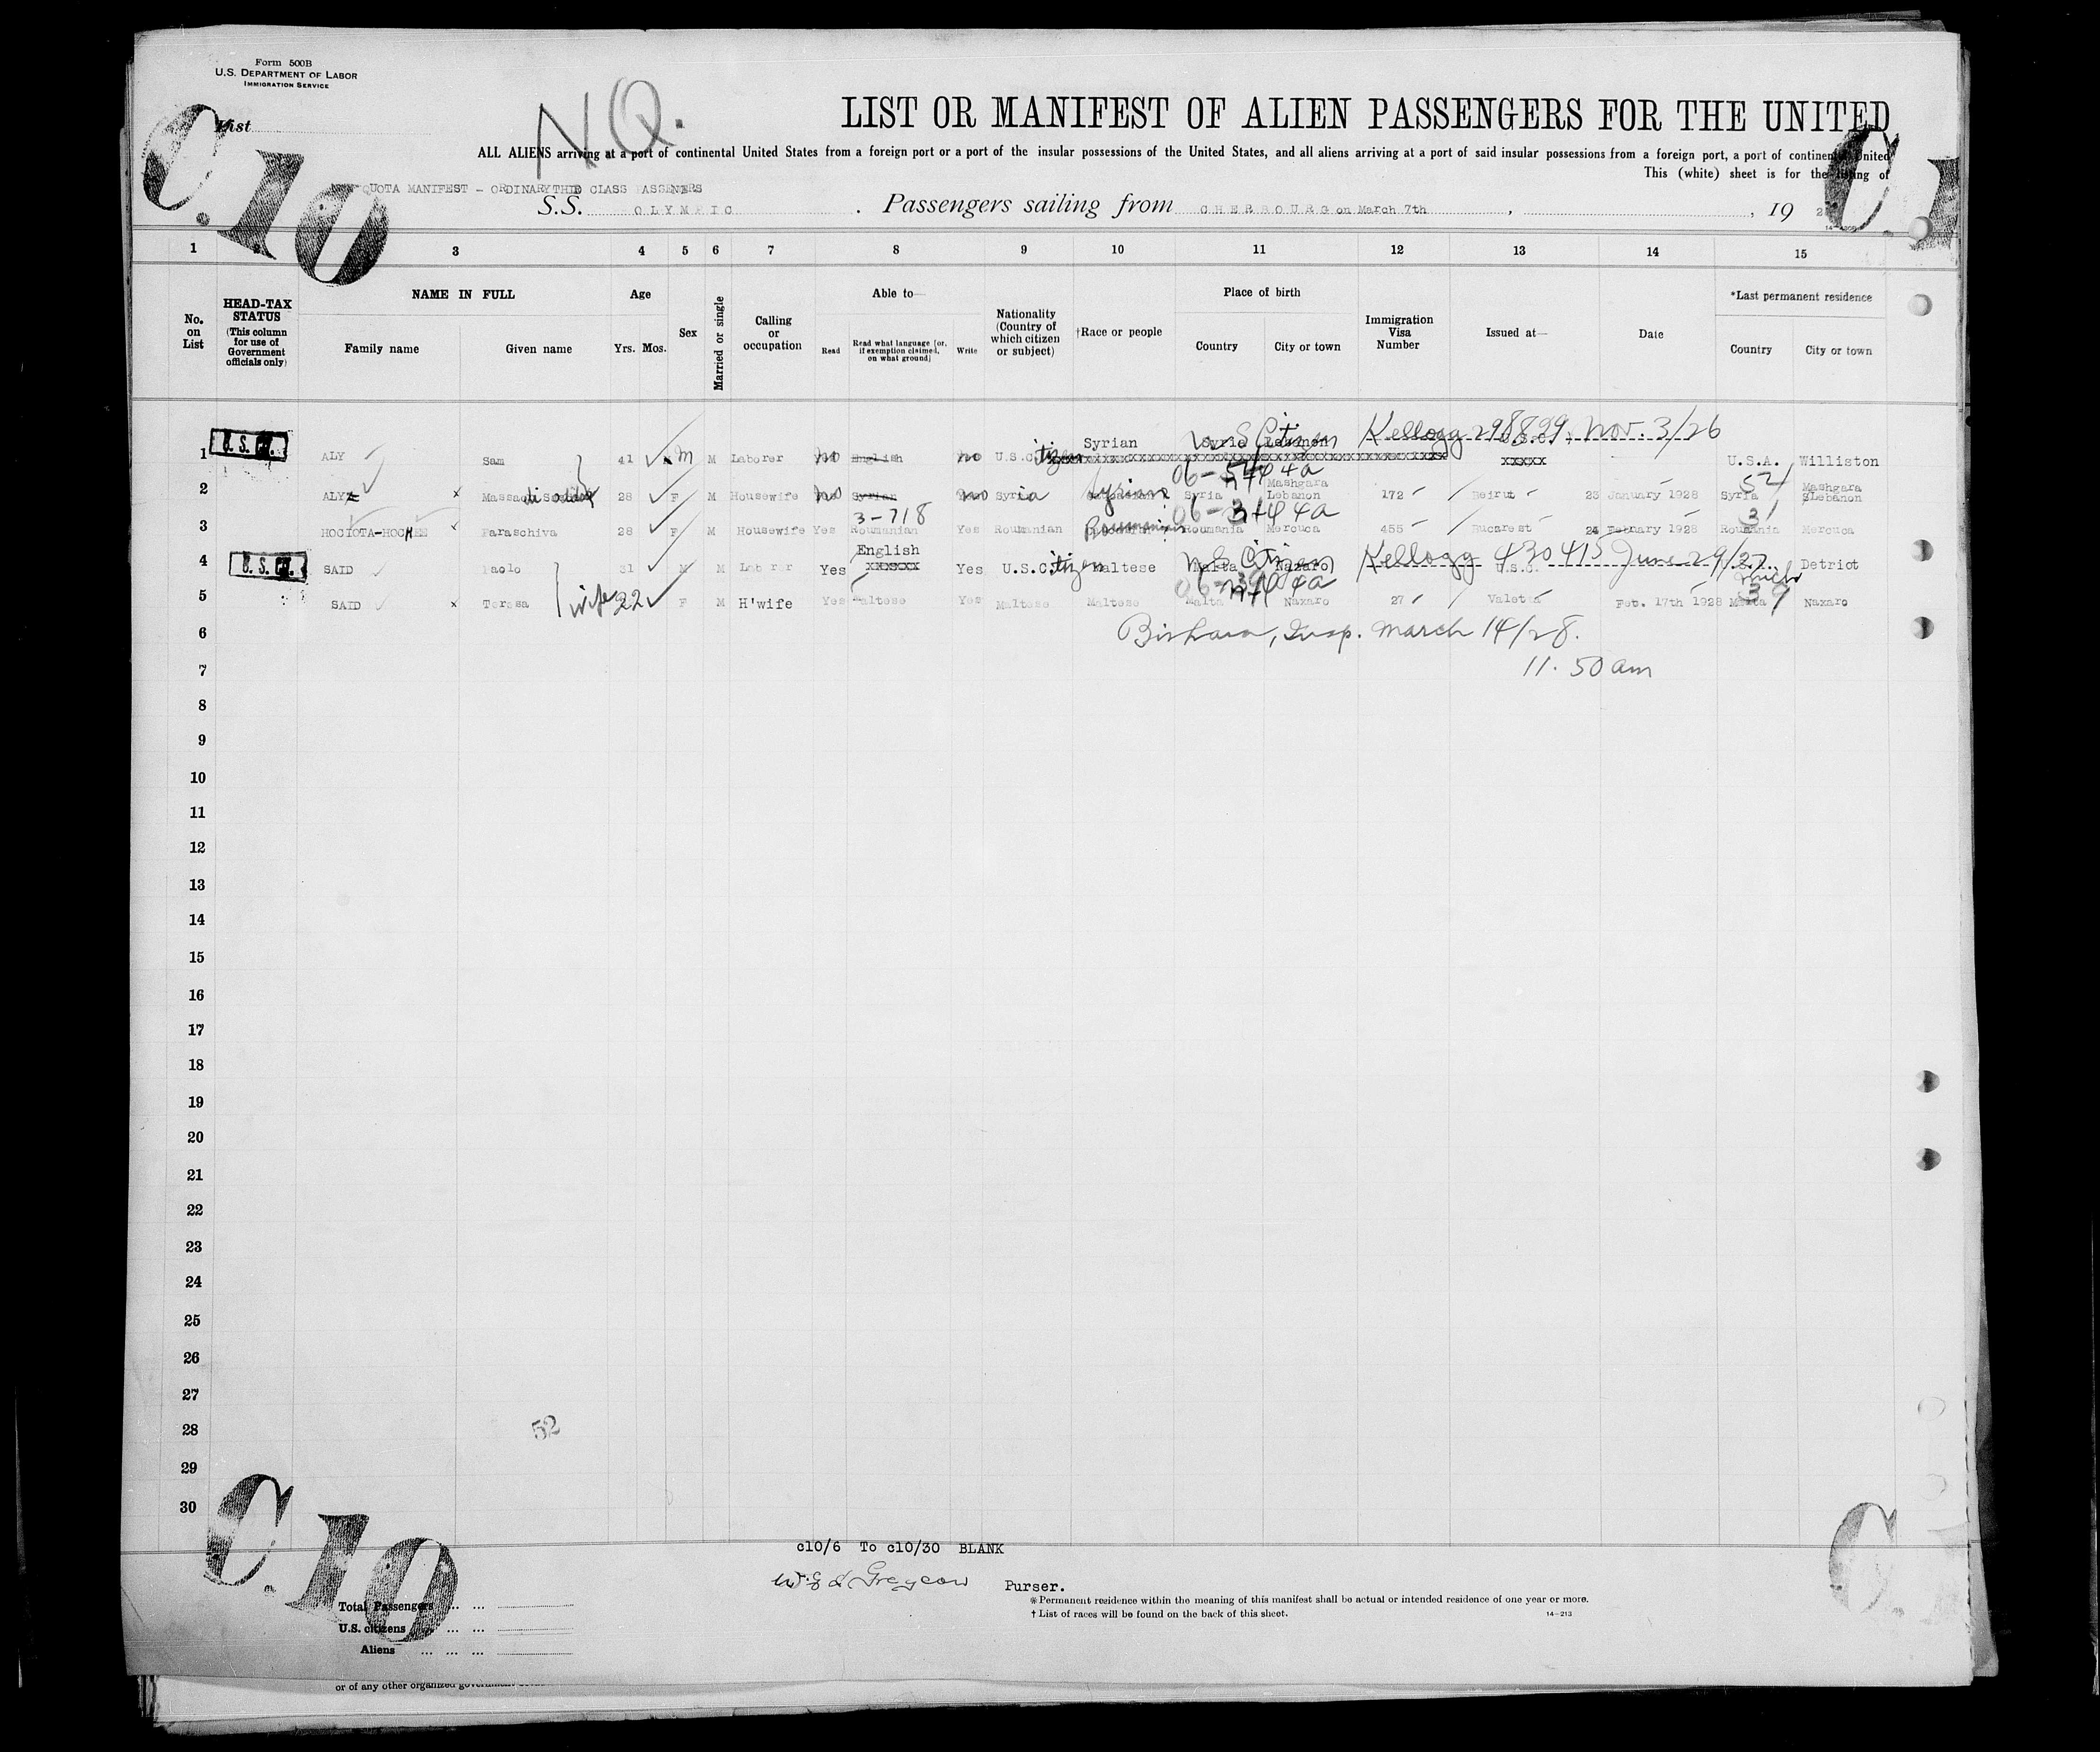 Form 500B
U.S. DEPARTMENT OF LABOR
IMMIGRATION SERVICE
NQ.
LIST OR MANIFEST OF ALIEN PASSENGERS FOR THE UNITED
C.10
List
C.1
ALL ALIENS arriving at a port of continental United States from a foreign port or a port of the insular possessions of the United States, and all aliens arriving at a port of said insular possessions from a foreign port, a port of continental United
This (white) sheet is for the listing of
QUOTA MANIFEST - ORDINARY THID CLASS PASSENERS
S.S. OLYMPIC . Passengers sailing from CHERBOURG on March 7th , , 19 2
1 2 3 4 5 6 7 8 9 10 11 12 13 14 15
No. on List
HEAD-TAX STATUS
(This column for use of Government officials only)
NAME IN FULL
Family name Given name
Age
Yrs. Mos.
Sex
Married or single
Calling or occupation
Able to—
Read
Read what language [or, if exemption claimed, on what ground]
Write
Nationality (Country of which citizen or subject)
†Race or people
Place of birth
Country City or town
Immigration Visa Number
Issued at—
Date
*Last permanent residence
Country City or town
1 U.S. ALY Sam 41 M M Laborer no English no U.S.Citizen Syrian Syria Lebanon U S Citizen Kellogg 298899 U.S.C. Nov. 3/26 U.S.A. Williston
xxxxx
06-
2 ALY Massadi 28 F M Housewife no Syrian no Syria Syrian Syria Mashgara Lebanon 172 Beirut 23 January 1928 Syria 52 Mashgara Lebanon
3-718
06-3144a
3 HOCIOTA-HOCHEE Paraschiva 28 F M Housewife Yes Roumanian Yes Roumanian Roumanian Roumania Mercuca 455 Bucarest 24 Febnary 1928 Roumania 31 Mercuca
4 U.S. SAID Paolo 31 M M Laborer Yes English xxxxxx Yes U.S.Citizen Maltese Malta Naxaro U S Citizen Kellogg 430415 U.S.C. June 29/27 Detriot
Mich
5 SAID Teresa wife 22 F M H'wife Yes Maltese Yes Maltese Maltese Malta Naxaro 27 Valetta Feb. 17th 1928 Malta 39 Naxaro
6 Birham, Insp. March 14/28.
7 11.50 am
8
9
10
11
12
13
14
15
16
17
18
19
20
21
22
23
24
25
26
27
28 52
29
30
C.10
C.
c10/6 To c10/30 BLANK
Purser.
Total Passengers ... ...
U.S. citizens ... ...
Aliens ... ... ...
* Permanent residence within the meaning of this manifest shall be actual or intended residence of one year or more.
† List of races will be found on the back of this sheet.
14-213
or of any other organized